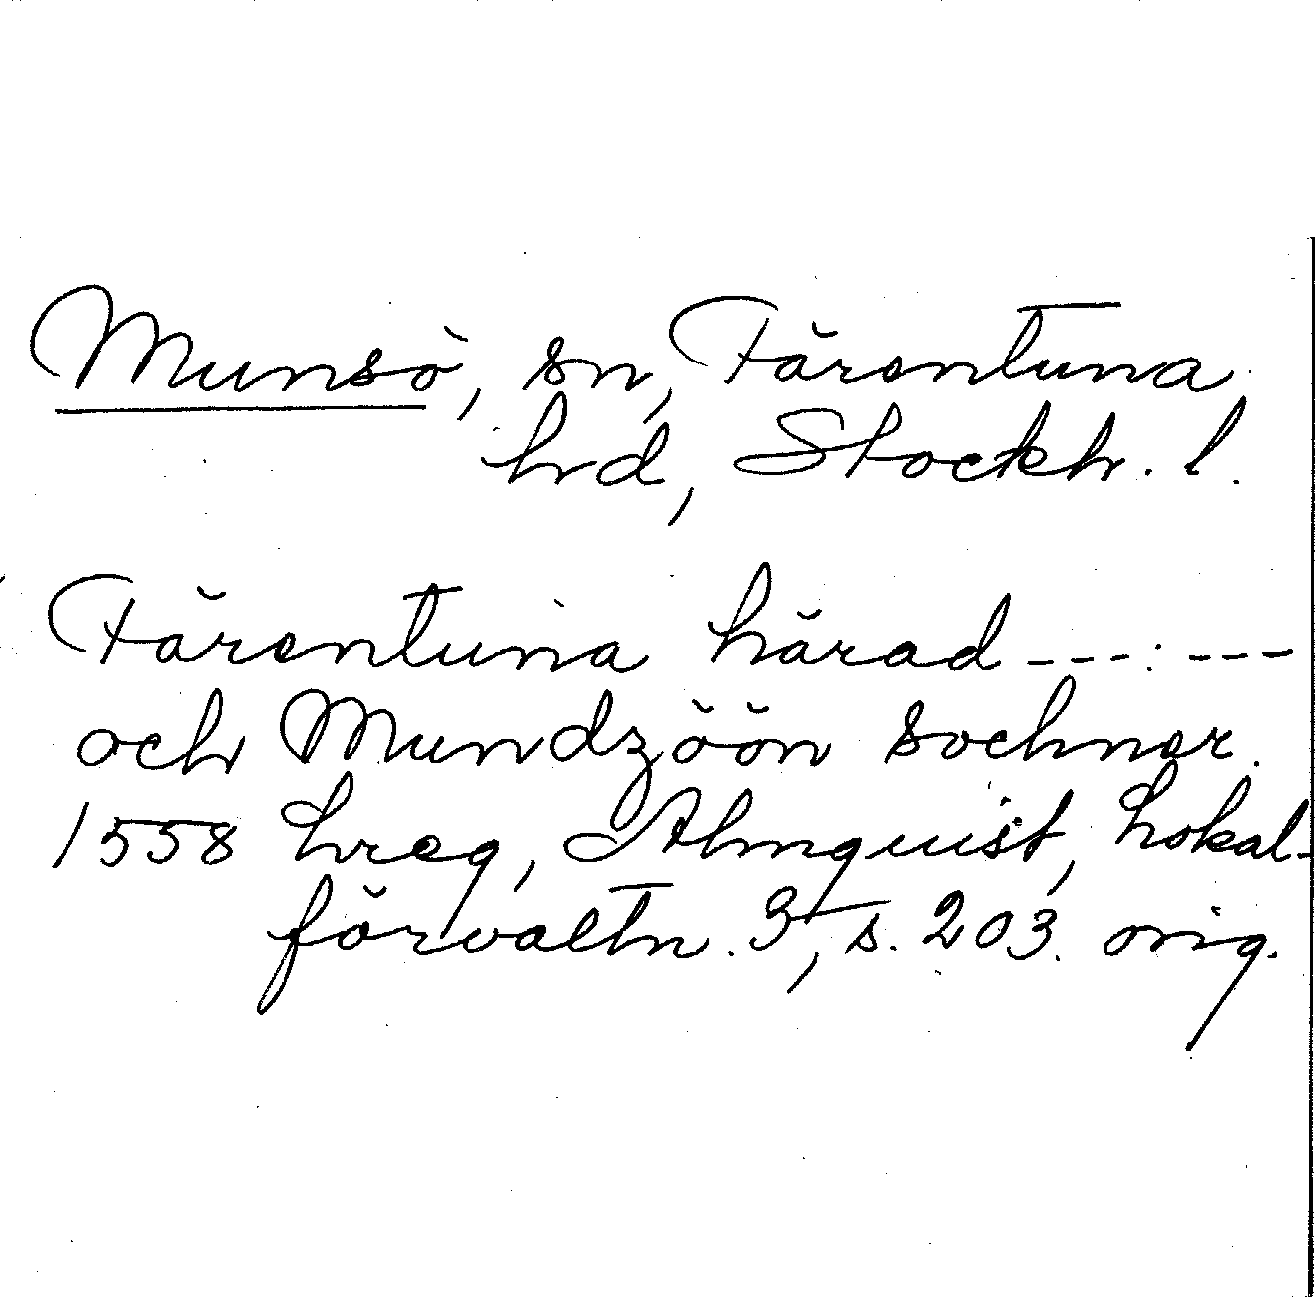 Munsö, sn, Färentuna
hrd, Stockh. l.
Färentuna härad ---:---
och Mundzöön sochner.
1558 hreg, Almquist, Lokal-
förvaltn. 3, s. 203. orig.